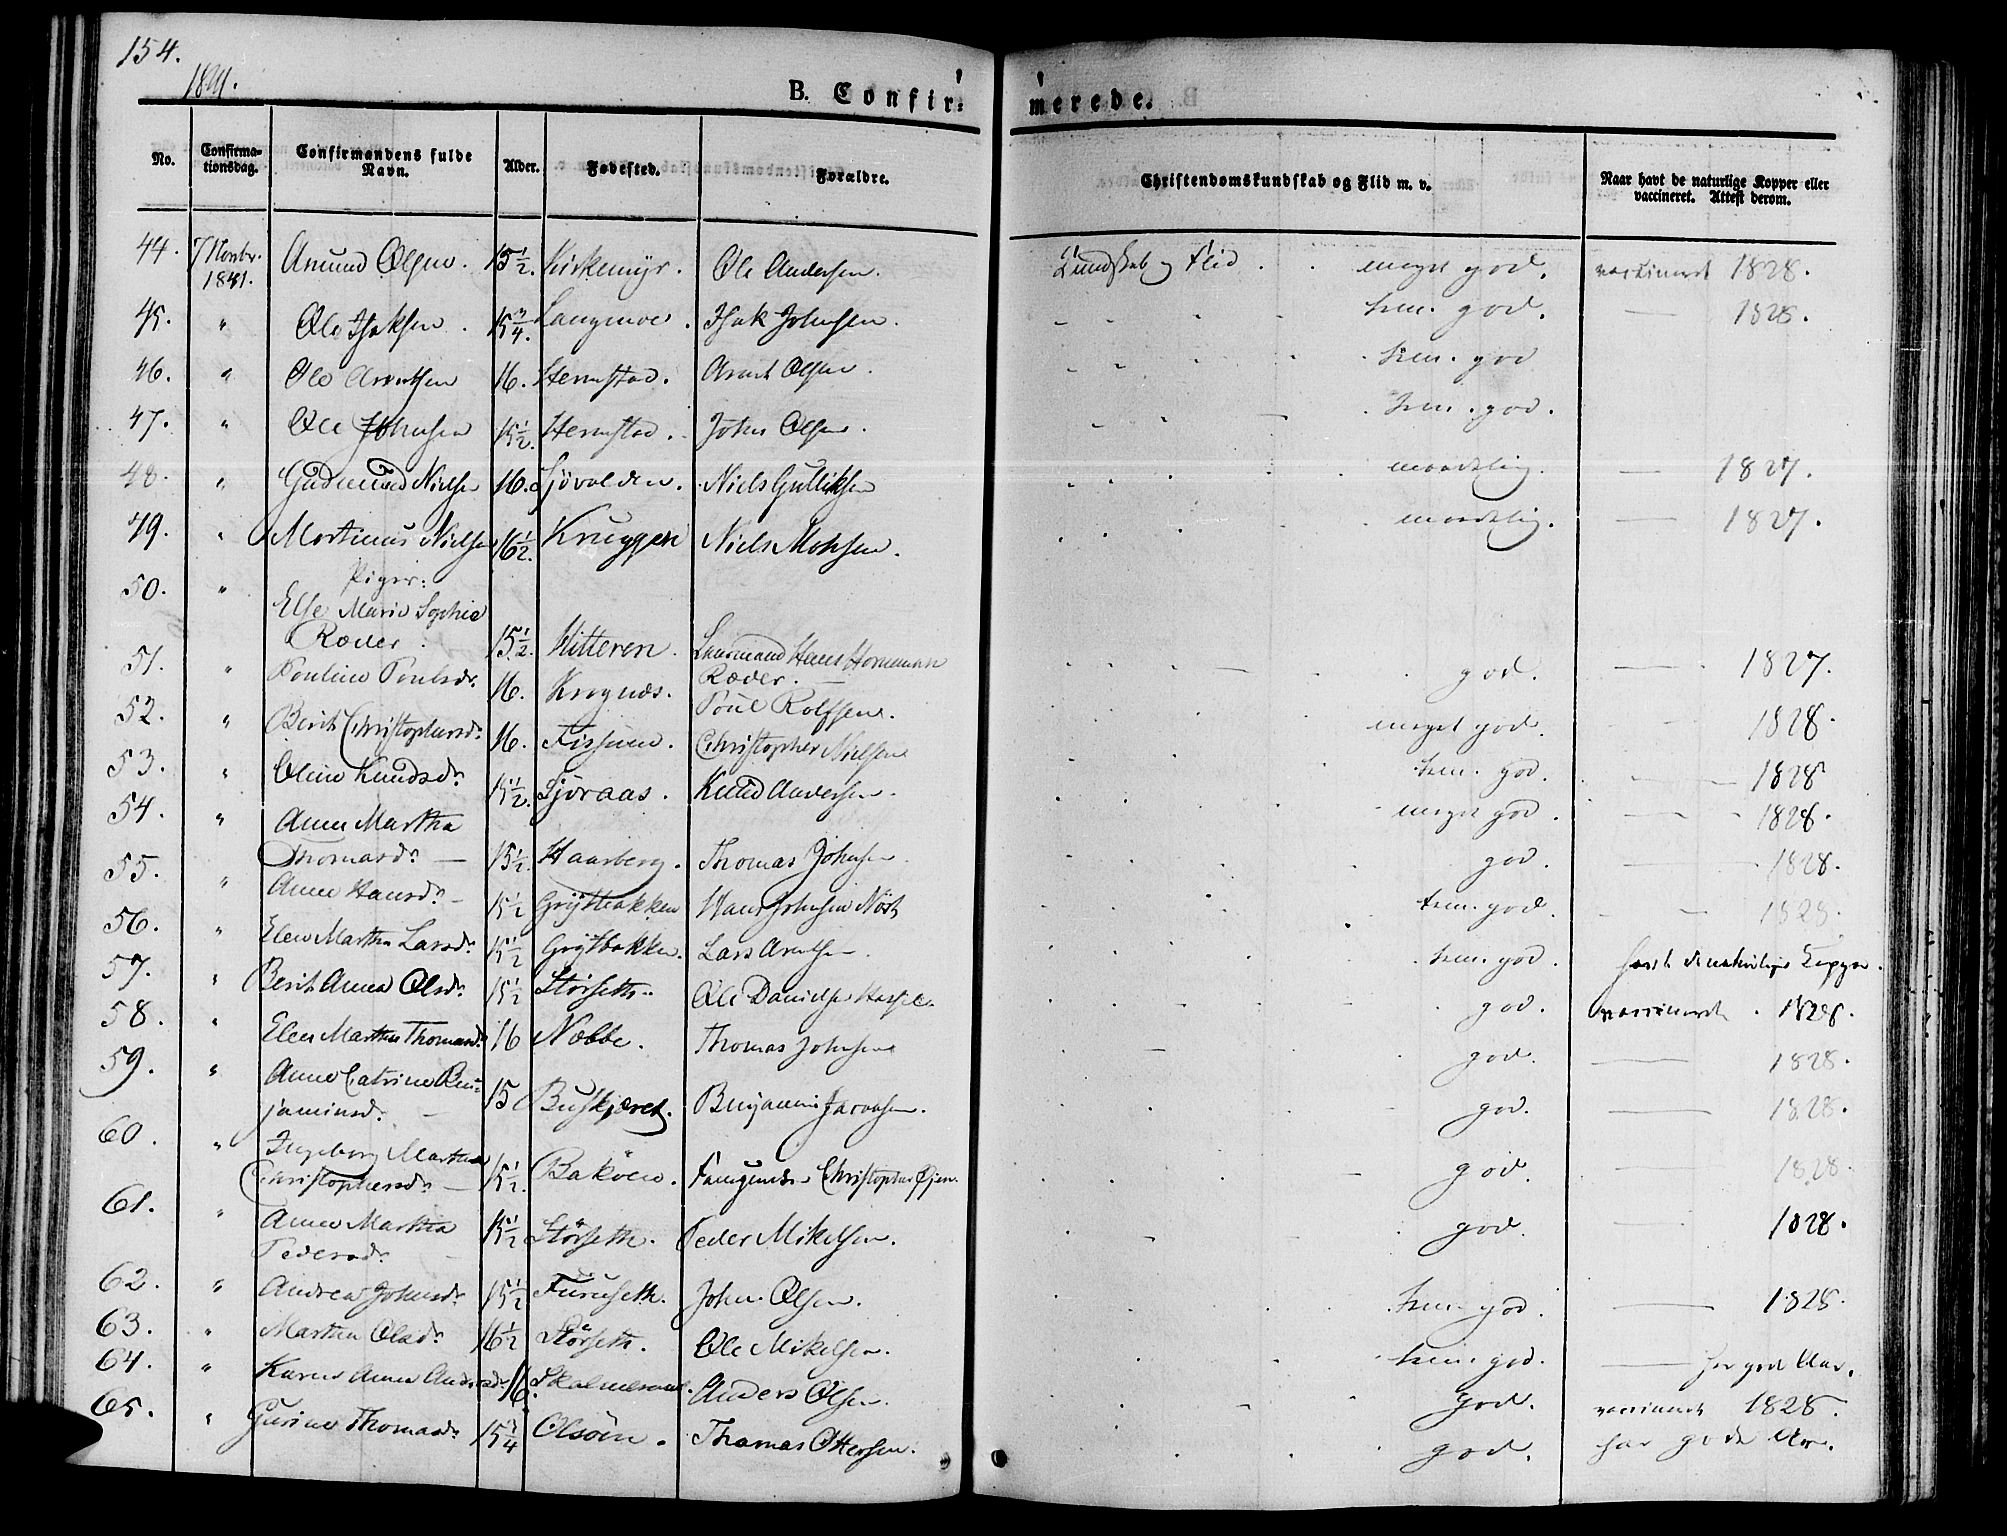 154.
1841.
B. Confir-
merede.
No.
Confirma-
tionsdag.
Confirmandens fulde
Navn.
Alder.
Fødested.
Forældre.
Christendomskundskab og Flid m. v.
Naar havt de naturlige Kopper eller
vaccineret. Attest derom.
44. 7 Novbr. 1841. Amund Olsen. 15 1/2. Kirkemyr. Ole Andersen. Kundskab og Flid meget god. vaccineret 1828.
45. " Ole Isaksen. 15 3/4. Langmoe. Isak Johnsen. tem. god. — 1828.
46. " Ole Arentsen 16. Hernstad. Arent Olsen. tem. god
47. " Ole Johnsen 15 1/2. Hernstad. John Olsen. tem. god.
48. " Gudmund Nielsen 16. Sjövolden. Niels Gulliksen maadelig. — 1827.
49. " Martinus Nielsen 16 1/2. Kruggen Niels Monsen. maadelig. — 1827.
Piger:
50. " Else Marie Sophie
Ræder 15 1/2. Hitteren. Hans Hornemann
Ræder. god. — 1827.
51. " Pouline Poulsdr. 16. Krognæs. Poul Rolfsen. meget god. 1828.
52. " Berit Christophersdr. 16. Christopher Nielsen tem. god. 1828
53. " Oline Knudsdr. 15 1/2. Sjöraas. Knud Andersen. meget god. 1828.
54. " Anne Martha
Thomasdr. — 15 1/2. Haarberg. Thomas Johnsen god. — 1828.
55. " Anne Hansdr. 15 1/2 Grytbakken Hans Johnsen Nöst tem. god. 1828.
56. " Elen Martha Larsdr. 15 1/2 Grytbakken. Lars Arentsen. tem. god. havt de naturlige Kopper.
57. " Berit Anna Olsdr. 15 1/2 Störseth. Ole Danielsen Hassel. god. vaccineret. 1828.
58. " Elen Martha Thomasdr. 16 Nebbe. Thomas Johnsen god. — 1828.
59. " Anne Catrine Ben-
jaminsd. — 15 Buskjæret. Benjamin god. — 1828.
60. " Ingeborg Martha
Christophersdr. — 15 1/2. Baköen. Christopher god. 1828.
61. " Anne Martha
Pedersdr. 15 1/2 Störseth. Peder Mikelsen. god. — 1828.
62. " Andrea Johnsdr. 15 1/2 Furuseth. John Olsen. tem. god. — 1828.
63. " Martha Olsdr. 16 1/2 Störseth. Ole Mikelsen. tem. god. — har gode Aar.
64. " Karen Anna Andersdr. 16. Anders Olsen. god. vaccineret 1828.
65. " Gurine Thomasdr. 15 3/4 Olsöen. Thomas Ottersen. god. har gode Aar.